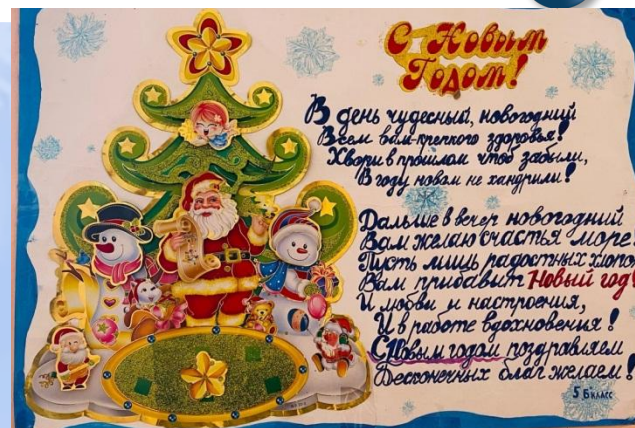 С Новым
Годом!
В день чудесный, новогодний
Всем вам крепкого здоровья!
Хвори в прошлом чтоб забыли,
В году новом не хандрили!
Дальше в вечер новогодний
Вам желаю счастья море!
Пусть лишь радостных хлопо
Вам прибавит Новый год!
И любви и настроения,
И в работе вдохновения!
С Новым годом поздравляем
Бесконечных благ желаем!
5 Б класс